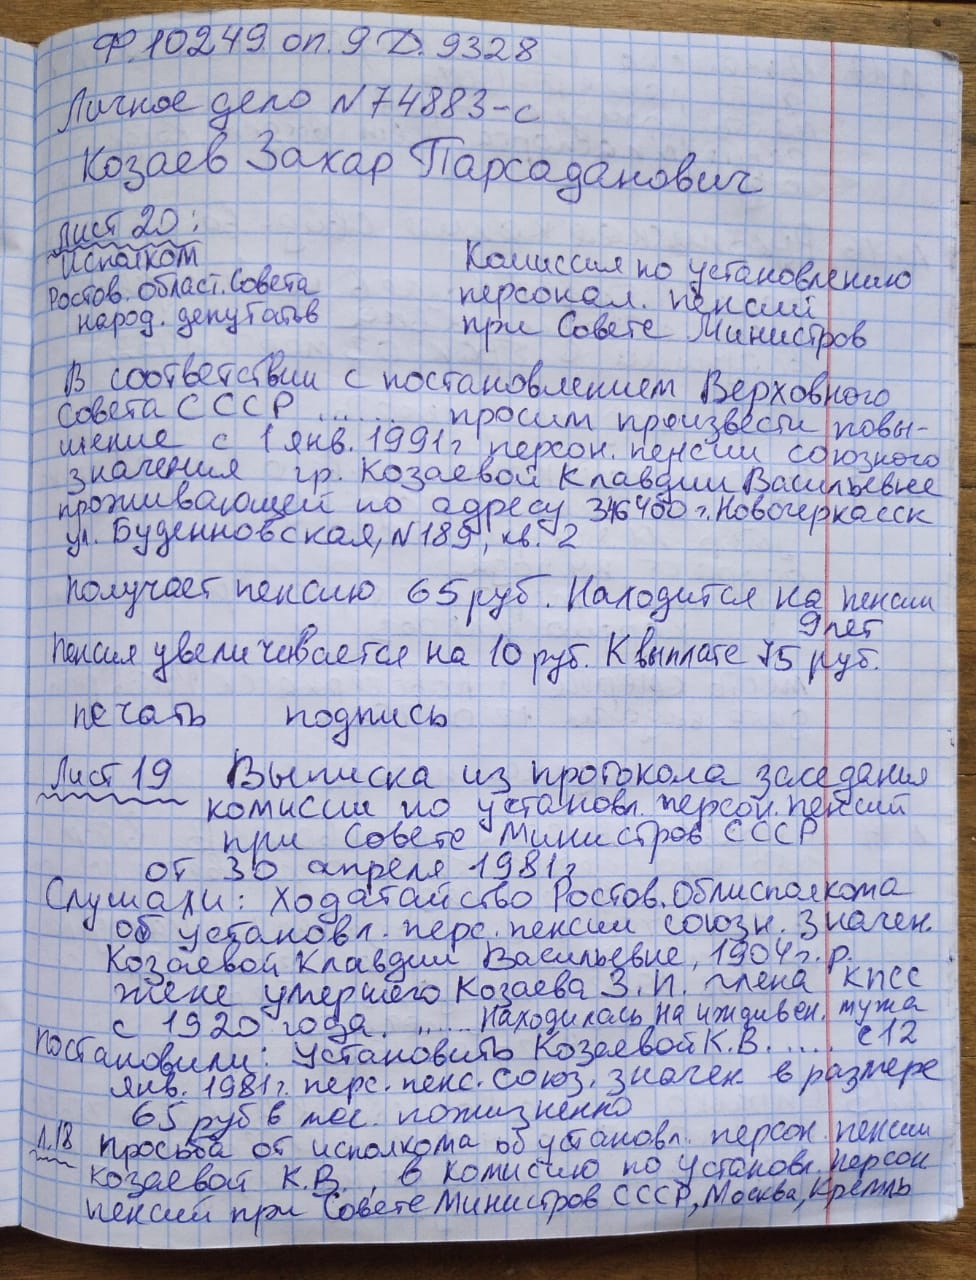 Ф. 10249 оп. 9 Д. 9328
Личное дело N 74883-с
Козаев Захар Парсаданович
Лист 20:
Исполком
Ростов. област. Совета
народ. депутатов
Комиссия по установлению
персонал. пенсий
при Совете Министров
В соответствии с постановлением Верховного
Совета СССР ...... просим произвести повы-
шение с 1 янв. 1991 г персон. пенсии союзного
значения гр. Козаевой Клавдии Васильевне
проживающей по адресу 346400 г. Новочеркасск
ул. Буденновская, N 189, кв. 2
Получает пенсию 65 руб. Находится на пенсии
9 лет
Пенсия увеличивается на 10 руб. К выплате 75 руб.
печать подпись
Лист 19 Выписка из протокола заседания
комиссии по установл. персон. пенсий
при Совете Министров СССР
от 30 апреля 1981 г
Слушали: Ходатайство Ростов. Облисполкома
об установл. перс. пенсии союзн. значен.
Козаевой Клавдии Васильевне, 1904 г. р.
жене умершего Козаева З. П. члена КПСС
с 1920 года. ...... Находилась на иждивен. мужа
Постановили: Установить Козаевой К. В. ..... с 12
янв. 1981 г. перс. пенс. союз. значен. в размере
65 руб в мес. пожизненно
л. 18 Просьба от исполкома об установл. персон. пенсии
Козаевой К. В., в комисию по установл. персон
пенсий при Совете Министров СССР, Москва, Кремль